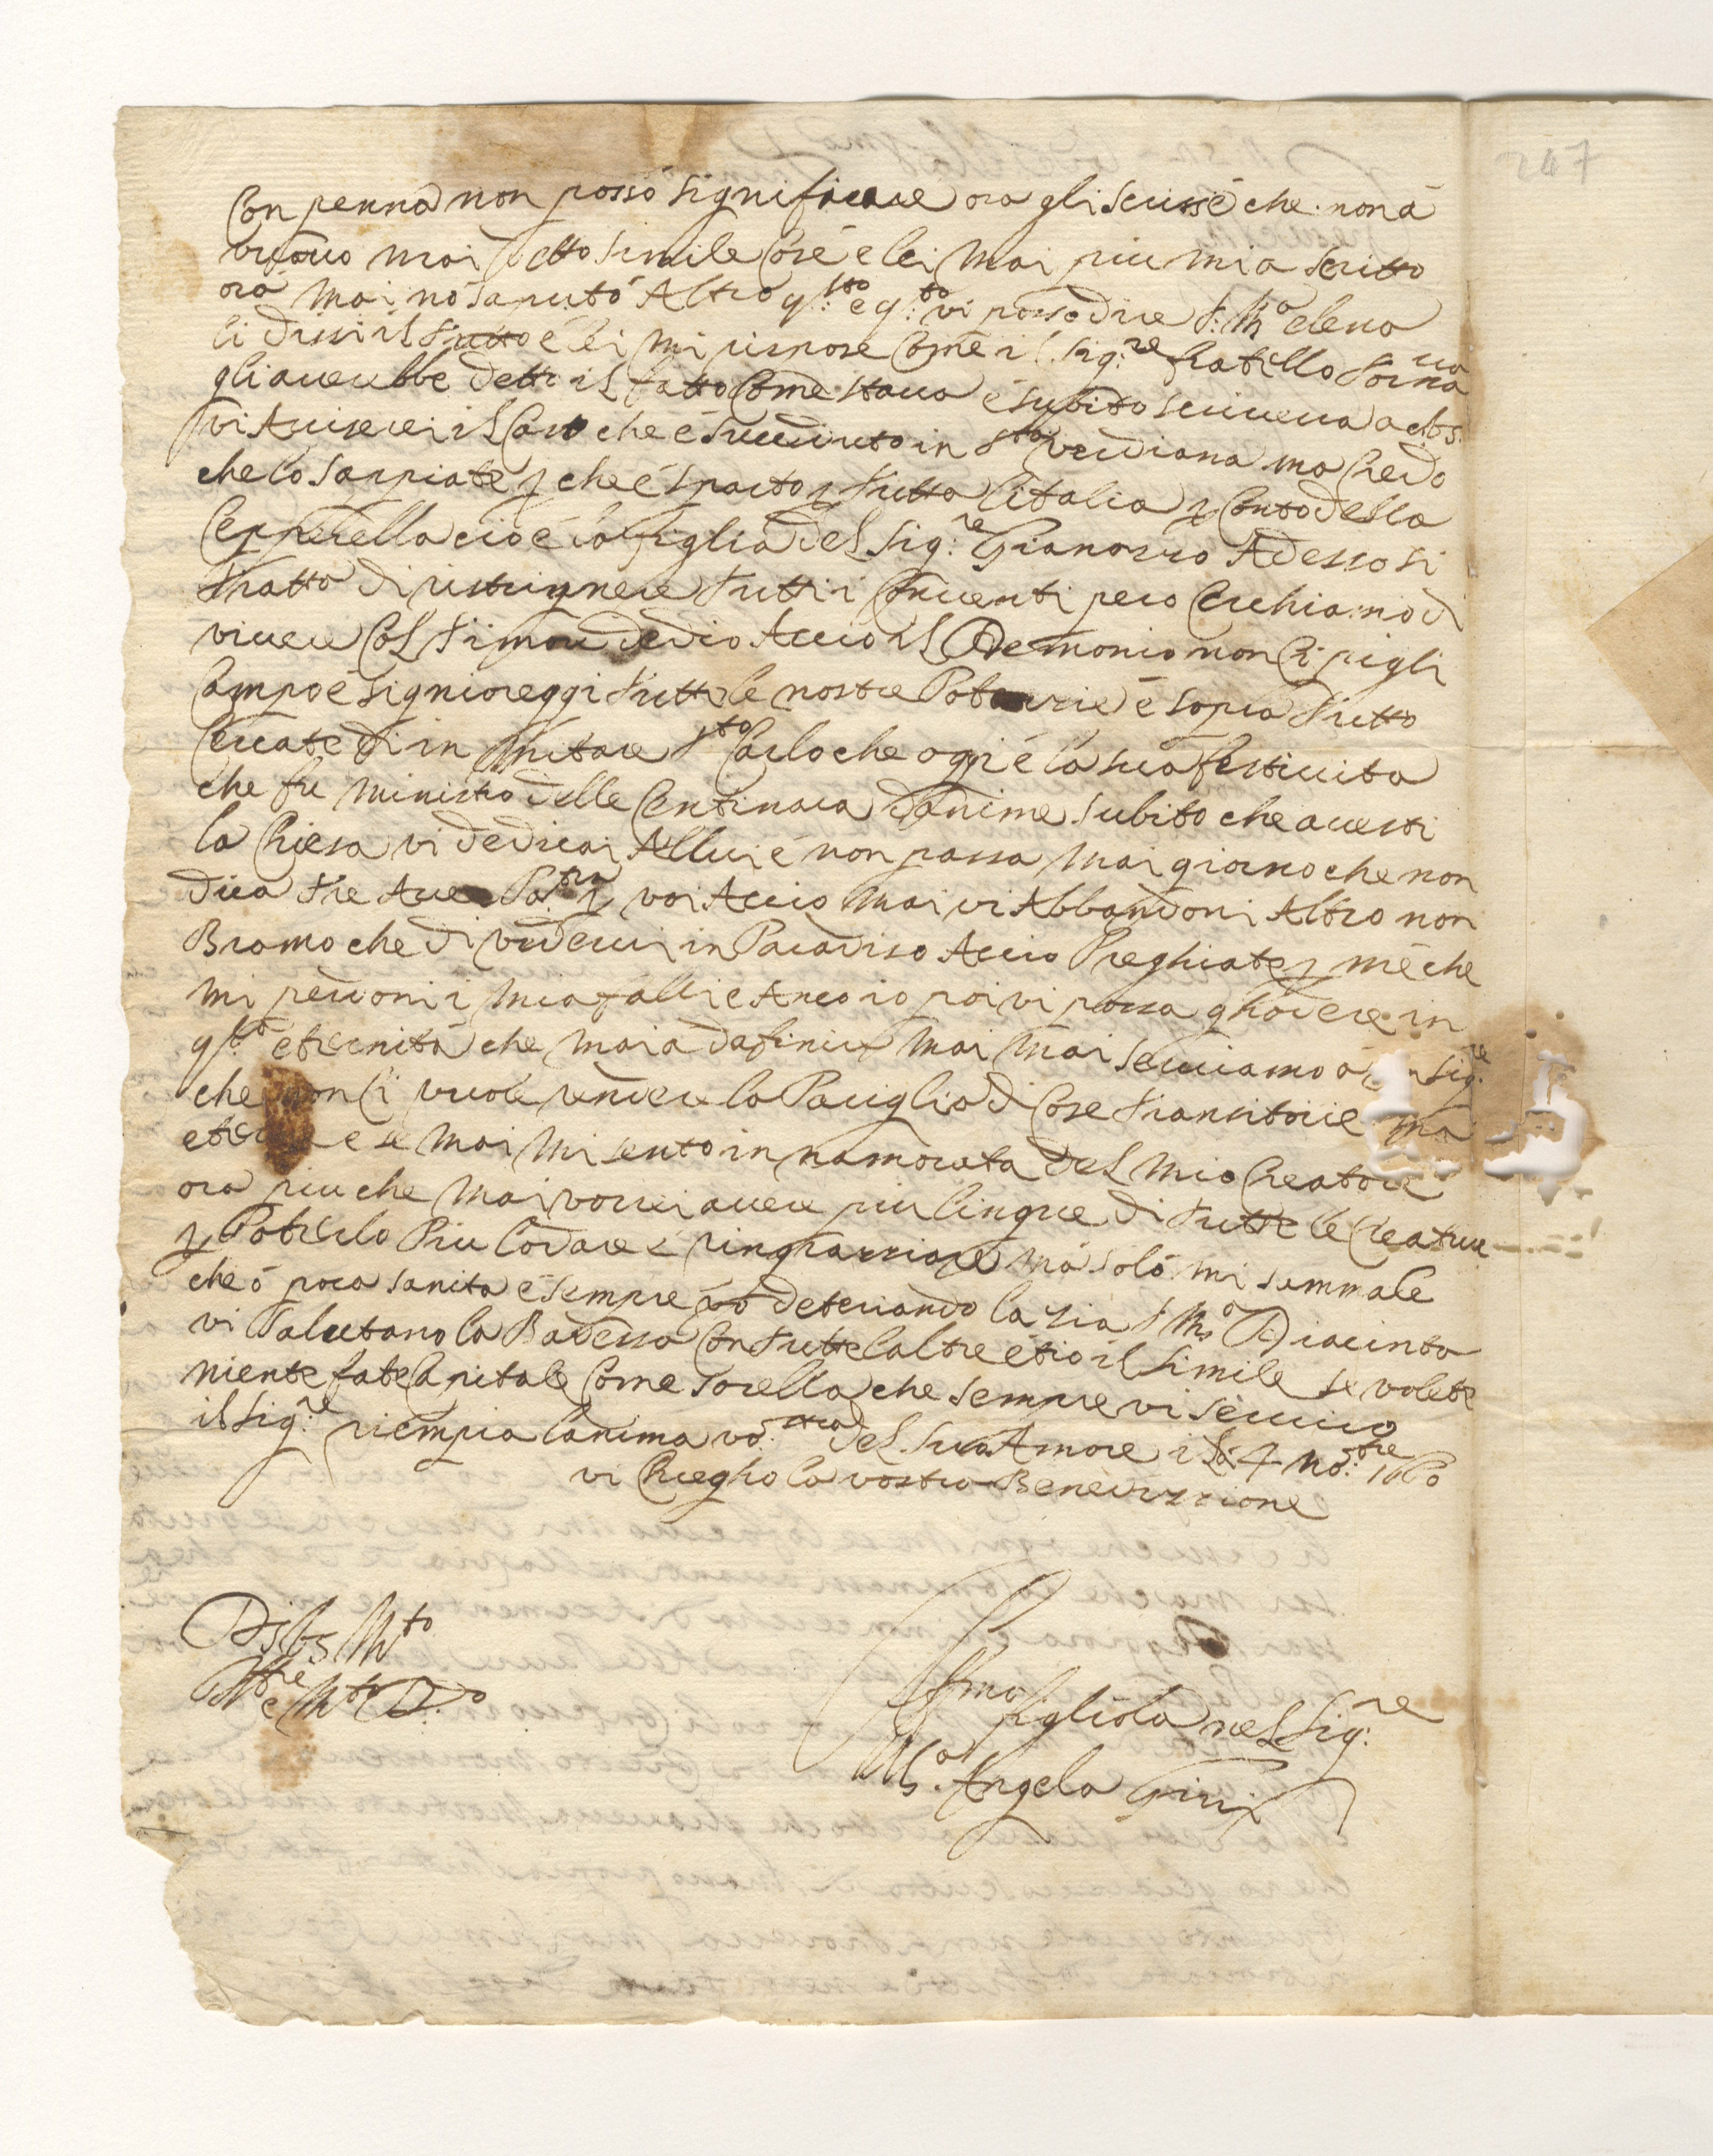 247
Con penna non posso significare ora gli scrissi é che non á
uiamo mai detto simile cose e lei mai piu mi a scritto
ora mai nó saputó Altro q:sto e q:to vi posso dire S: Ma elena
li dissi il tutto é lei mi rispose come il sig:re fratello torna
gli auerebbe detto il fatto come staua é subito scriueua a
vi Auiserei il Caso che é succeduto in sta verdiana ma Credo
che lo sappiate p che é sparto p tutta litalia p Conto della
Cepperella cioé la figlia del Sig:re Gianozzo Adesso si
tratta di ristrignere tutti i Conuenti pero Cerchiamo di
viuere Col timore de dio Accio il Demonio non Ci pigli
Campo é signioreggi tutte le nostre Potenzie é sopra tutto
Cercate di in Mitare sto Carlo che oggi é la sua festiuita
che fu ministro delle Centinara danime subito che auesti
la Chiesa vi dedicai Allui é non passa mai giorno che non
dica tre Aue p voi Accio mai vi Abbandoni Altro non
Bramo che di vederui in Paradiso Accio Preghiate p mé che
mi perdoni i mia falli e Ancor io poi vi possa ghodere in
q:lla eternitá che mai á da finire mai mai seruiamo a sig:re
che non Ci vuole rendere la Pariglia di Cose transitorie ma
eterne e se mai mi sento in namorata del mio Creatore
ora piu che mai vorrei auere piu lingue di tutte le Creature
p Poterlo Piu lodare é ringrazziare ma solo mi sa male
che ó poca sanita é sempre vó deteriando la zia S Ma Diacinta
vi Salutano la Badessa Con tutte laltre é io il simile se volete
niente fate Capitale Come sorella che sempre vi seruiro
il Sig:re riempia lanima vo:stra del suo Amore il di 4 no:bre
vi Chiegho la vostra Benedizzione
Mto
Mto
Affma figliola nel Sig:re
Angela